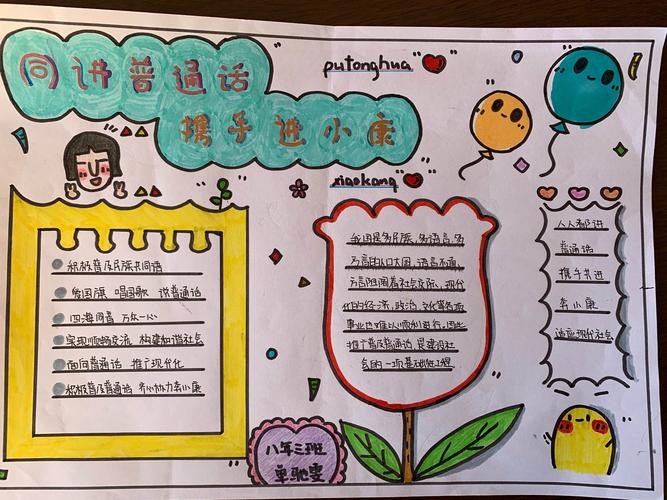 同讲普通话
携手进小康
putonghua
xiaokang
积极普及民族共同语
爱国旗 唱国歌 说普通话
四海同音 万众一心
实现顺畅交流 构建和谐社会
面向普通话 推广现代化
积极普及普通话 齐心协力奔小康
我国是多民族、多语言、多
方言的人口大国,语言不通,
方言阻隔着社会交际,现代
化的经济,政治,文化等各项
事业也难以顺利进行,因此
推广普及普通话,是建设社
会的一项基础性工程
人人都讲
普通话
携手共进
奔小康
适应现代社会
八年三班
单驰雯